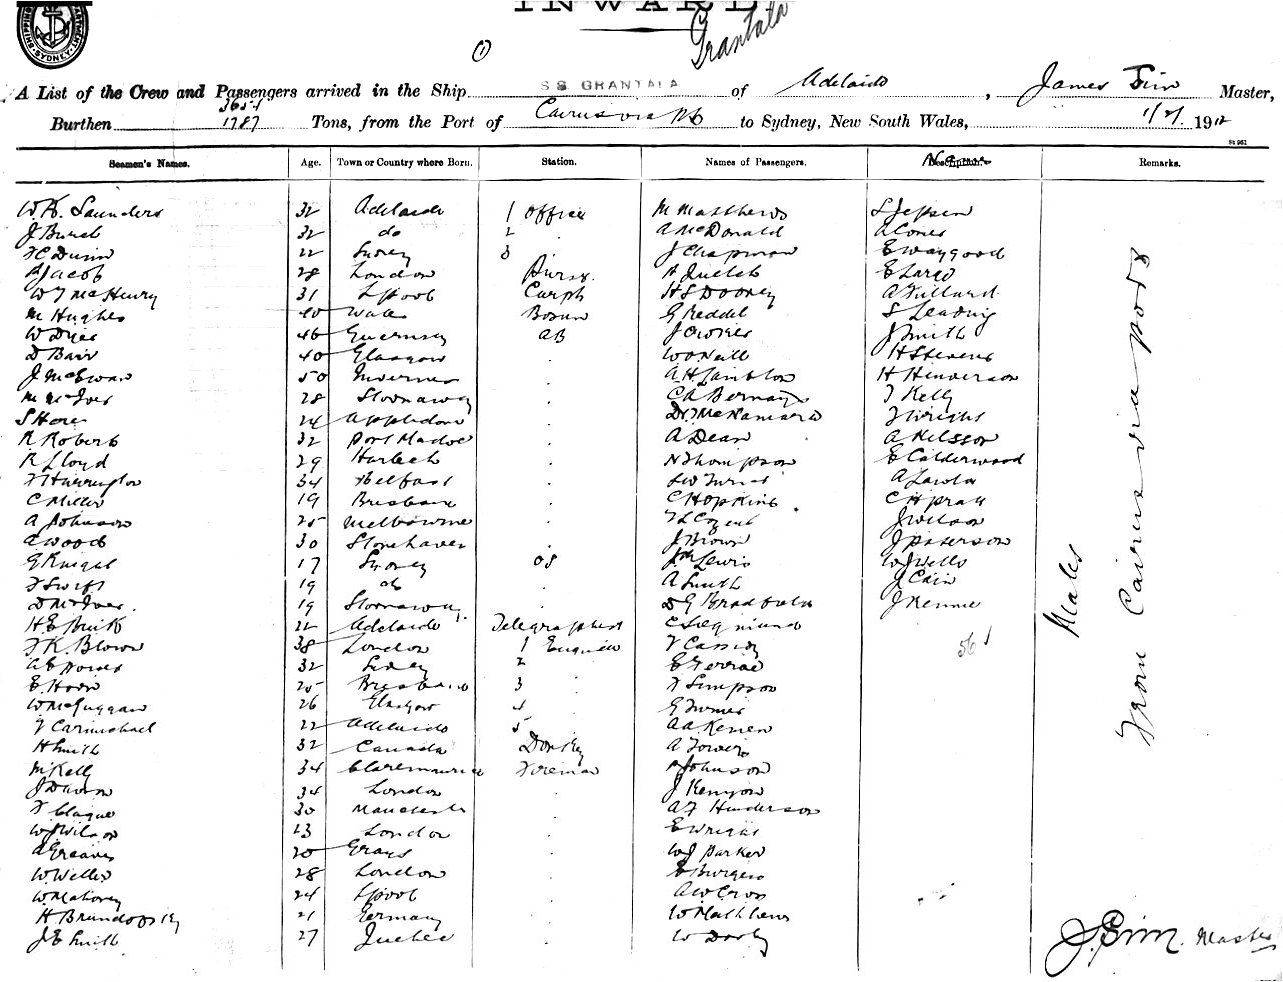 INWARD
Grantala
SHIPPING DEPARTMENT SYDNEY
(1)
A List of the Crew and Passengers arrived in the Ship S S GRANTALA of Adelaide, James Sim Master,
Burthen 3654 1787 Tons, from the Port of Cairns via to Sydney, New South Wales, 1912
St 961
Seamen's Names. Age. Town or Country where Born. Station. Names of Passengers. Names Remarks.
W. H. Saunders 32 Adelaide 1 Office M Matthews S Jepsen
J Burch 32 do 2 A McDonald A Comer
F C Dunn 22 Sydney 3 J Chapman E Waygood
Jacob 28 London Purs. Quelch E Largo
W J McHenry 31 Lpool Carpt H S Dooney A Fullard
M Hughes 40 Wales Bosun G Reddel S Leading
W Dyer 46 Guernsey AB J Owner J Smith
D Barr 40 Glasgow W O Neill H Stevens
J McEwan 50 Inverness A H Lambton H Henderson
M McIver 28 Stornaway C A Bernays J Kelly
S Hore 24 Appledore Dr McNamara J Wright
R Roberts 32 Port Madoc A Dean A Nilsson
R Lloyd 29 Harlech N Thompson E Calderwood
F Harrington 34 Belfast S W Turner A Lawler
C Miller 19 Brisbane C Hopkins C H Pratt
A Johnson 25 Melbourne J Wilson
A Wood 30 Stonehaven J Brown J Paterson
G Knight 17 Sydney OS J M Lewis W J Wells
F Swift 19 do A Smith J Cain
D McIver 19 Stornaway D G Bradfield J Rennie
H E Buik 22 Adelaide Telegraphist C Siegmund
F K Blown 38 London 1 Engineer V Cassidy 56
A E Power 32 Sydney 2 E Ferrae
E Horn 25 Brisbane 3 F Simpson
W McGuggan 26 Glasgow 4 G Turner
J Carmichael 22 Adelaide 5 A A Kenen
H Smith 32 Canada Donkey A Tower
M Kelly 34 Fireman Johnson
J Dawson 34 London J Kenyon
F Clague 30 Manchester A F Henderson
W J Wilson 23 London E Wright
A Greaves 20 Grays W J Parker
W Wells 28 London E Burgess
W Mahoney 24 Lpool A W Cross
H 21 Germany W Matthews
J E Smith 27 Quebec W Darby
Males
From Cairns via ports
J. Sim. Master